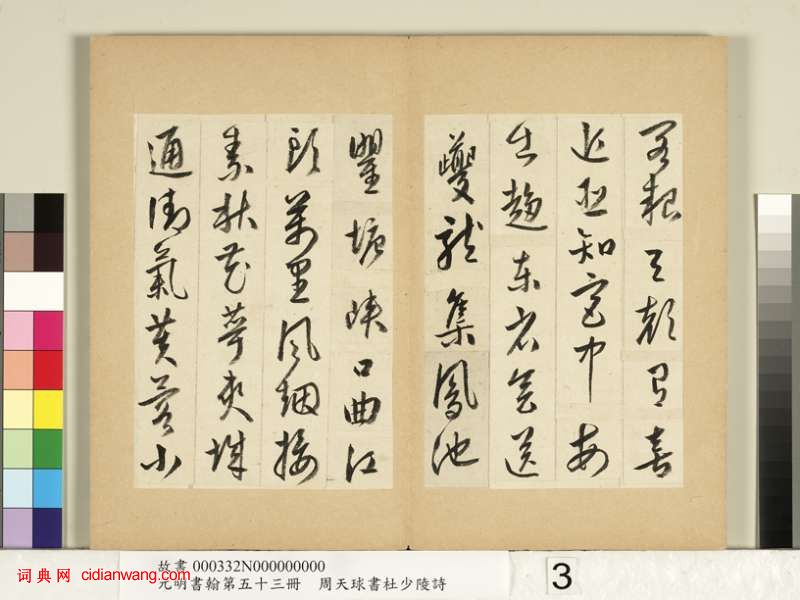 閣報天顏有喜
近臣知宮中每
出趨東省會送
夔龍集鳳池
瞿塘峽口曲江
頭萬里風烟接
素秋花萼夾城
通御氣芙蓉小
故書 000332N000000000
元明書翰第五十三冊 周天球書杜少陵詩
3
词典网 cidianwang.com